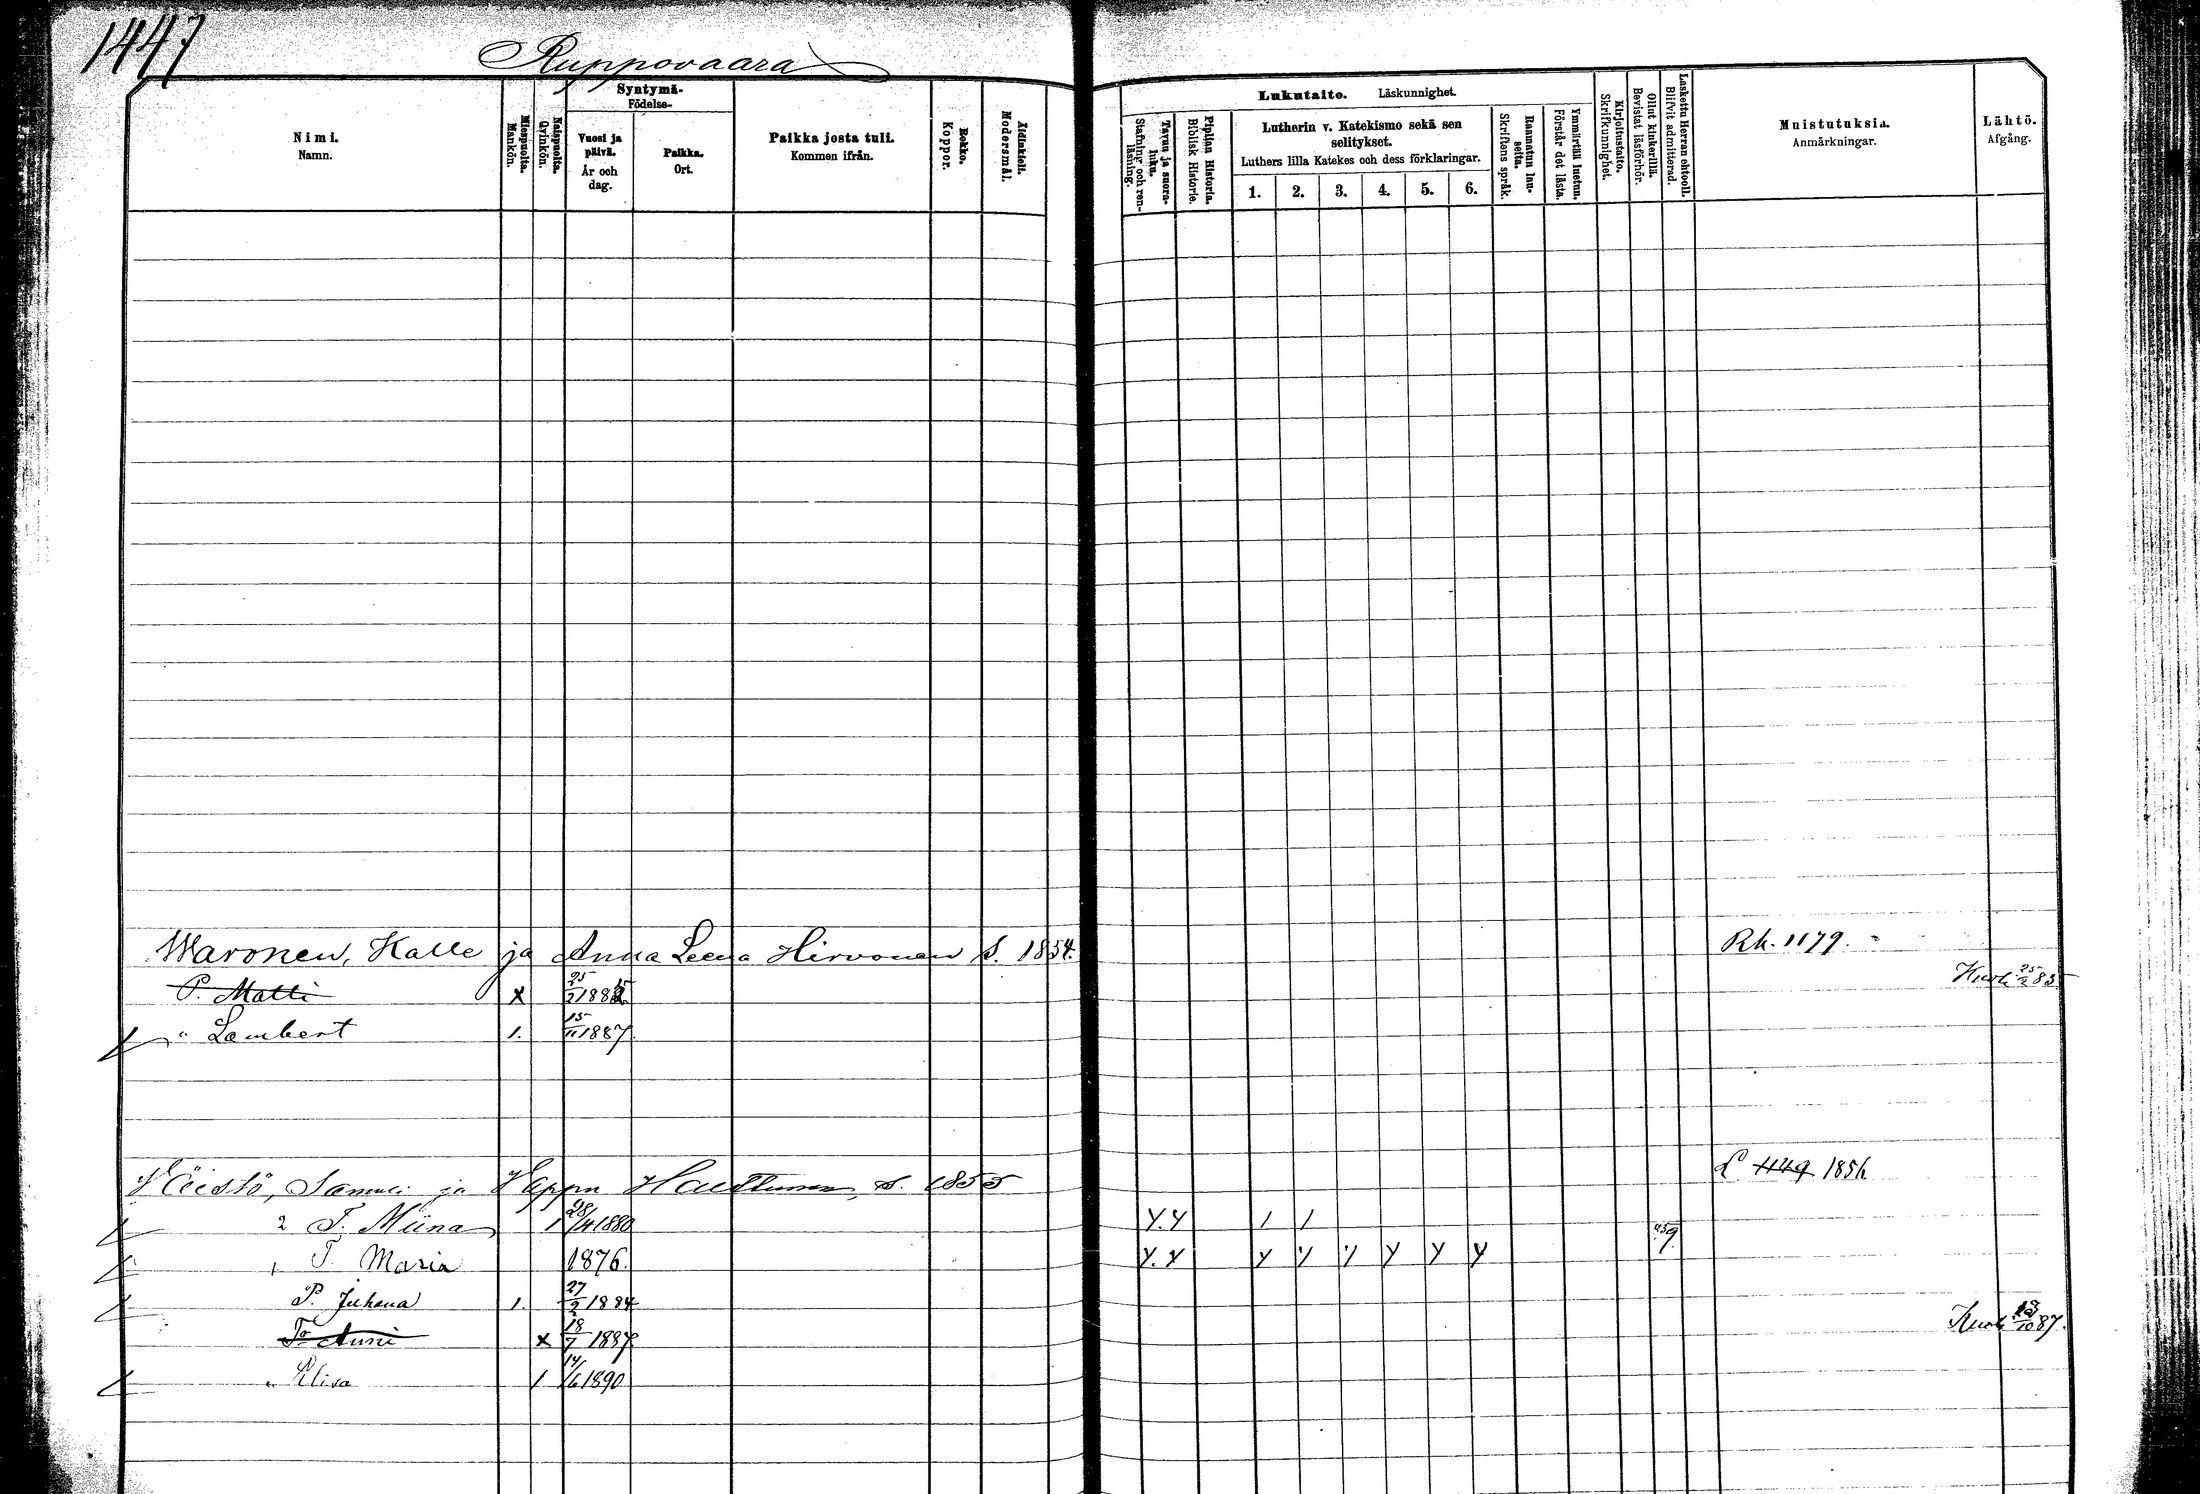 1447
Ruppovaara
Nimi.
Namn.
Miespuolia.
Mankön.
Naispuolia.
Qvinkön.
Syntymä-
Födelse-
Vuosi ja päivä.
År och dag.
Paikka.
Ort.
Paikka josta tuli.
Kommen ifrån.
Rokko.
Koppor.
Äidinkieli.
Modersmål.
Lukutaito. Läskunnighet.
Tavuu ja suora-luku.
Stafning och ren-läsning.
Piplian Historia.
Biblisk Historie.
Lutherin v. Katekismo sekä sen
selitykset.
Luthers lilla Katekes och dess förklaringar.
1. 2. 3. 4. 5. 6.
Raamatun lau-seita.
Skriftens språk.
Ymmärtää luetun.
Förstår det lästa.
Kirjoitustaito.
Skrifkunnighet.
Ollut kinkerillä.
Bevistat läsförhör.
Laskettu Herran ehtooll.
Blifvit admitterad.
Muistutuksia.
Anmärkningar.
Lähtö.
Afgång.
Waronen, Kalle ja Anna Leena Hirvonen s. 1854. Rk. 1179.
P. Matti x 25/2 188 Kuoli 25/2 85
" Lambert 1. 15/11 1887.
Väistö, Samuli ja Vappu s. 1855 L. 1149 1856
2 T. Miina 1 28/4 1880 y.y 1 1
" T. Maria 1876. y.y y y y y y y
P. Juhana 1. 27/2 1884
T. Anni x 18/7 1887. Kuoli 13/10 87.
" Elisa 1 14/6 1890